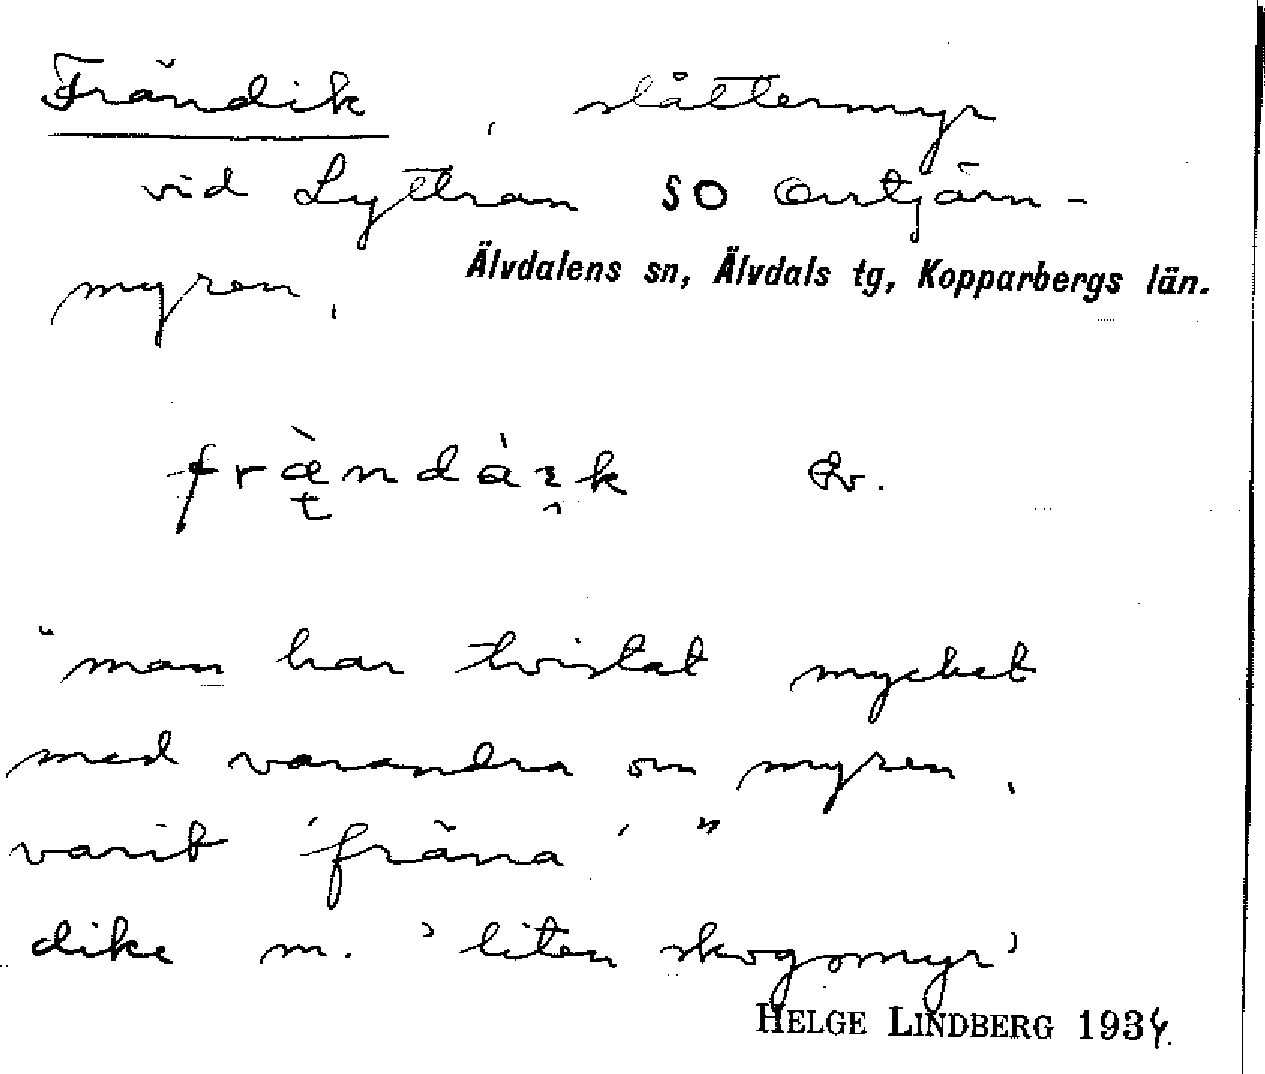 Frändik, slåttermyr
vid Lyttran SO Orrtjärn-
myren.
Älvdalens sn, Älvdals tg, Kopparbergs län.
"man har tvistat mycket
med varandra om myren,
varit 'fräna'"
dike m. 'liten skogsmyr'
HELGE LINDBERG 1934.